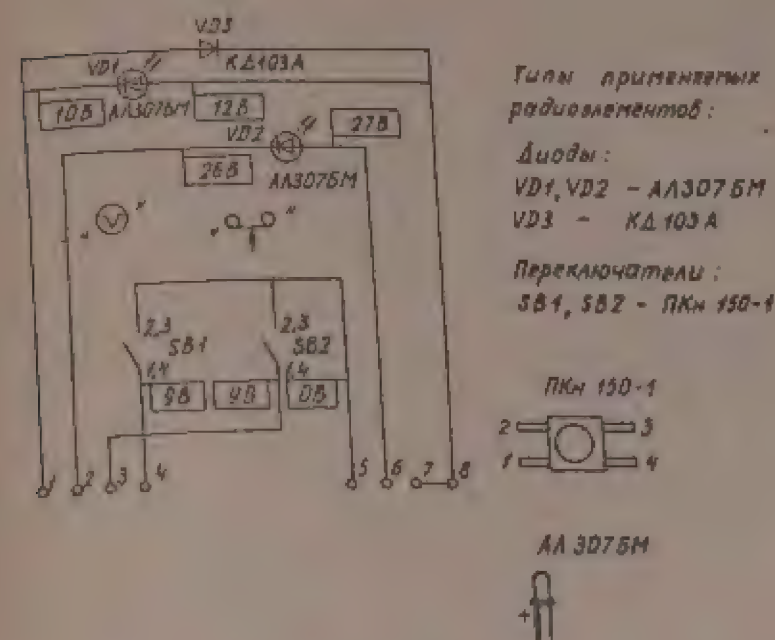 VD3
VD1
КД103А
10В
АЛ307БМ
12В
VD2
27В
26В
АЛ307БМ
" V "
" "
2,3
SB1
1,4
2,3
SB2
1,4
9В
9В
0В
1 2 3 4 5 6 7 8
Типы применяемых
радиоэлементов:
Диоды:
VD1, VD2 - АЛ307БМ
VD3 - КД103А
Переключатели:
SB1, SB2 - ПКн 150-1
ПКн 150-1
2 3
1 4
АЛ307БМ
+